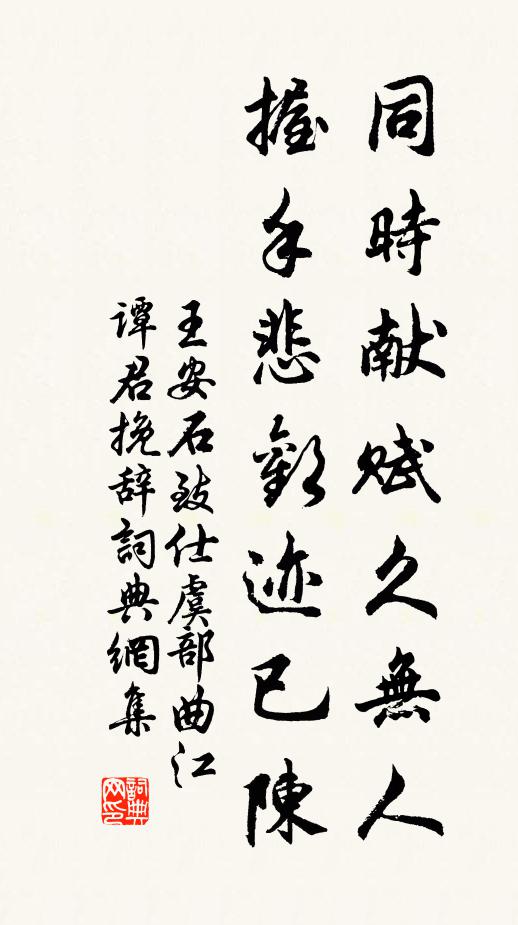 同時献賦久無人
握手悲歡迹已陳
王安石致仕虞部曲江
譚君挽辞詞典網集
詞典
网印